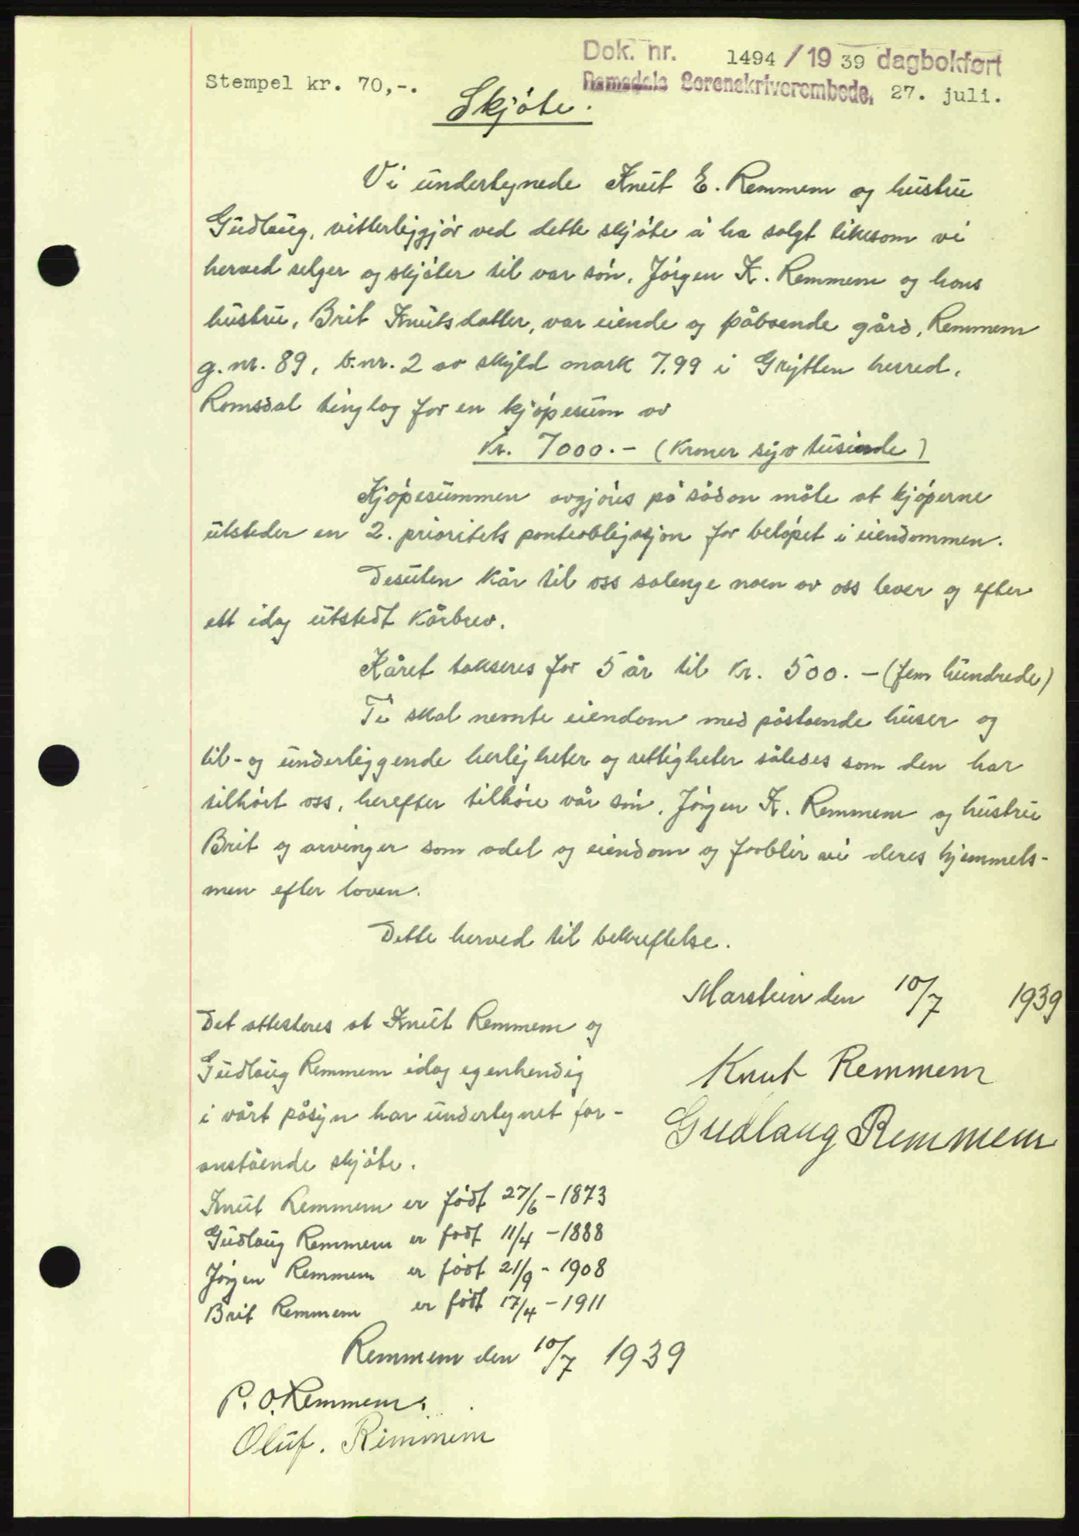 Dok. nr. 1494 / 19 39 dagbokført
Stempel kr. 70,-. Romsdals Sorenskriverembede, 27. juli.
Skjøte.
Vi undertegnede Knut E. Remmem og hustru
Gudlaug, vitterliggjør ved dette skjøte å ha solgt likesom vi
herved selger og skjøter til vår søn, Jørgen K. Remmem og hans
hustru, Brit Knutsdatter, vår eiende og påboende gård, Remmem
g.nr. 89, b.nr. 2 av skyld mark 7.99 i Grytten herred,
Romsdal tinglag for en kjøpesum av
Kr. 7000.- (Kroner syv tusinde)
Kjøpesummen avgjøres på sådan måte at kjøperne
utsteder en 2. prioritets panteobligasjon for beløpet i eiendommen.
Desuten kår til oss salenge noen av oss lever og efter
ett idag utstedt kårbrev.
Kåret takseres for 5 år til kr. 500.- (fem hundrede)
Ti skal nemte eiendom med påstående huser og
til- og underliggende herligheter og rettigheter således som den har
tilhørt oss, herefter tilhøre vår søn, Jørgen K. Remmem og hustru
Brit og arvinger som odel og eiendom og forblir vi deres hjemmels-
men efter loven.
Dette herved til bekreftelse.
Marstein den 10/7 1939
Det attesteres at Knut Remmem og
Gudlaug Remmem idag egenhendig
i vårt påsyn har undertegnet for-
anstående skjøte.
Knut Remmem
Gudlaug Remmem
Knut Remmem er født 27/6 - 1873
Gudlaug Remmem er født 11/4 - 1888
Jørgen Remmem er født 21/9 - 1908
Brit Remmem er født 17/4 - 1911
Remmem den 10/7 1939
P. O. Remmem.
Oluf. Remmem